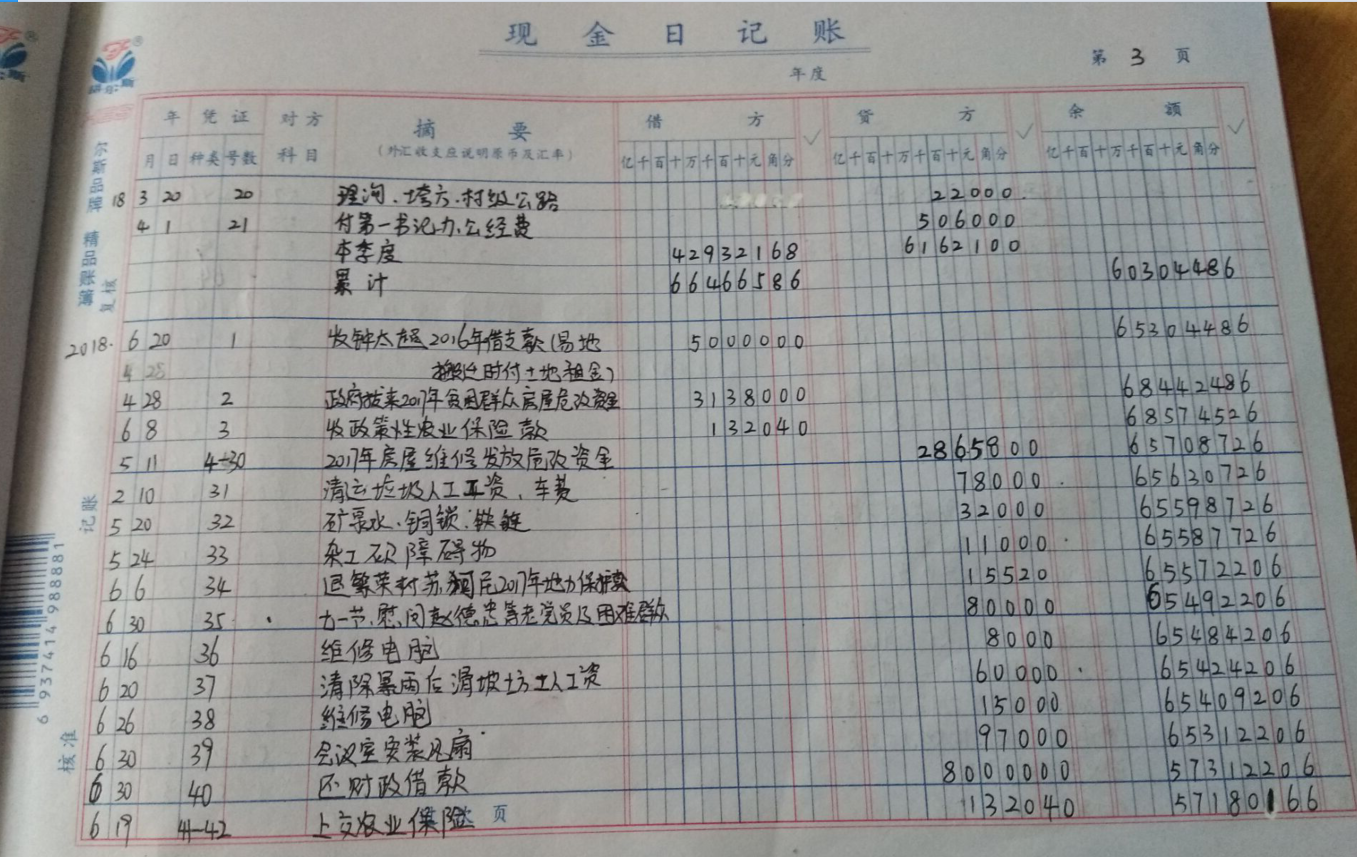 现金日记账
年度
第 3 页
年 凭证 对方 摘要 借方 贷方 余额
月 日 种类 号数 科目 (外汇收支应说明原币及汇率) 亿千百十万千百十元角分 亿千百十万千百十元角分 亿千百十万千百十元角分
18 3 20 20 理沟、垮方、村级公路 22000
4 1 21 付第一书记办公经费 506000
本季度 42932168 6162100
累计 66466586 60304486
2018. 6 20 1 收钟太超2016年借支款(易地 5000000 65304486
4 28 搬迁时付土地租金)
4 28 2 政府拨来2017年贫困群众房屋危改资金 3138000 68442486
6 8 3 收政策性农业保险款 132040 68574526
5 11 4-30 2017年房屋维修发放危改资金 2865800 65708726
2 10 31 清运垃圾人工工资、车费 78000 65630726
5 20 32 矿泉水、铜锁、铁链 32000 65598726
5 24 33 杂工砍障碍物 11000 65587726
6 6 34 退繁荣村苏 2017年地力保护款 15520 65572206
6 30 35 七一节、慰问赵德忠等老党员及困难群众 80000 65492206
6 16 36 维修电脑 8000 65484206
6 20 37 清除暴雨后滑坡土方人工资 60000 65424206
6 26 38 维修电脑 15000 65409206
6 30 39 会议室安装风扇 97000 65312206
6 30 40 还财政借款 8000000 57312206
6 19 41-42 上交农业保险 132040 57180166
页
尔斯品牌 精品账簿
复核
记账
核准
6 937414 988881